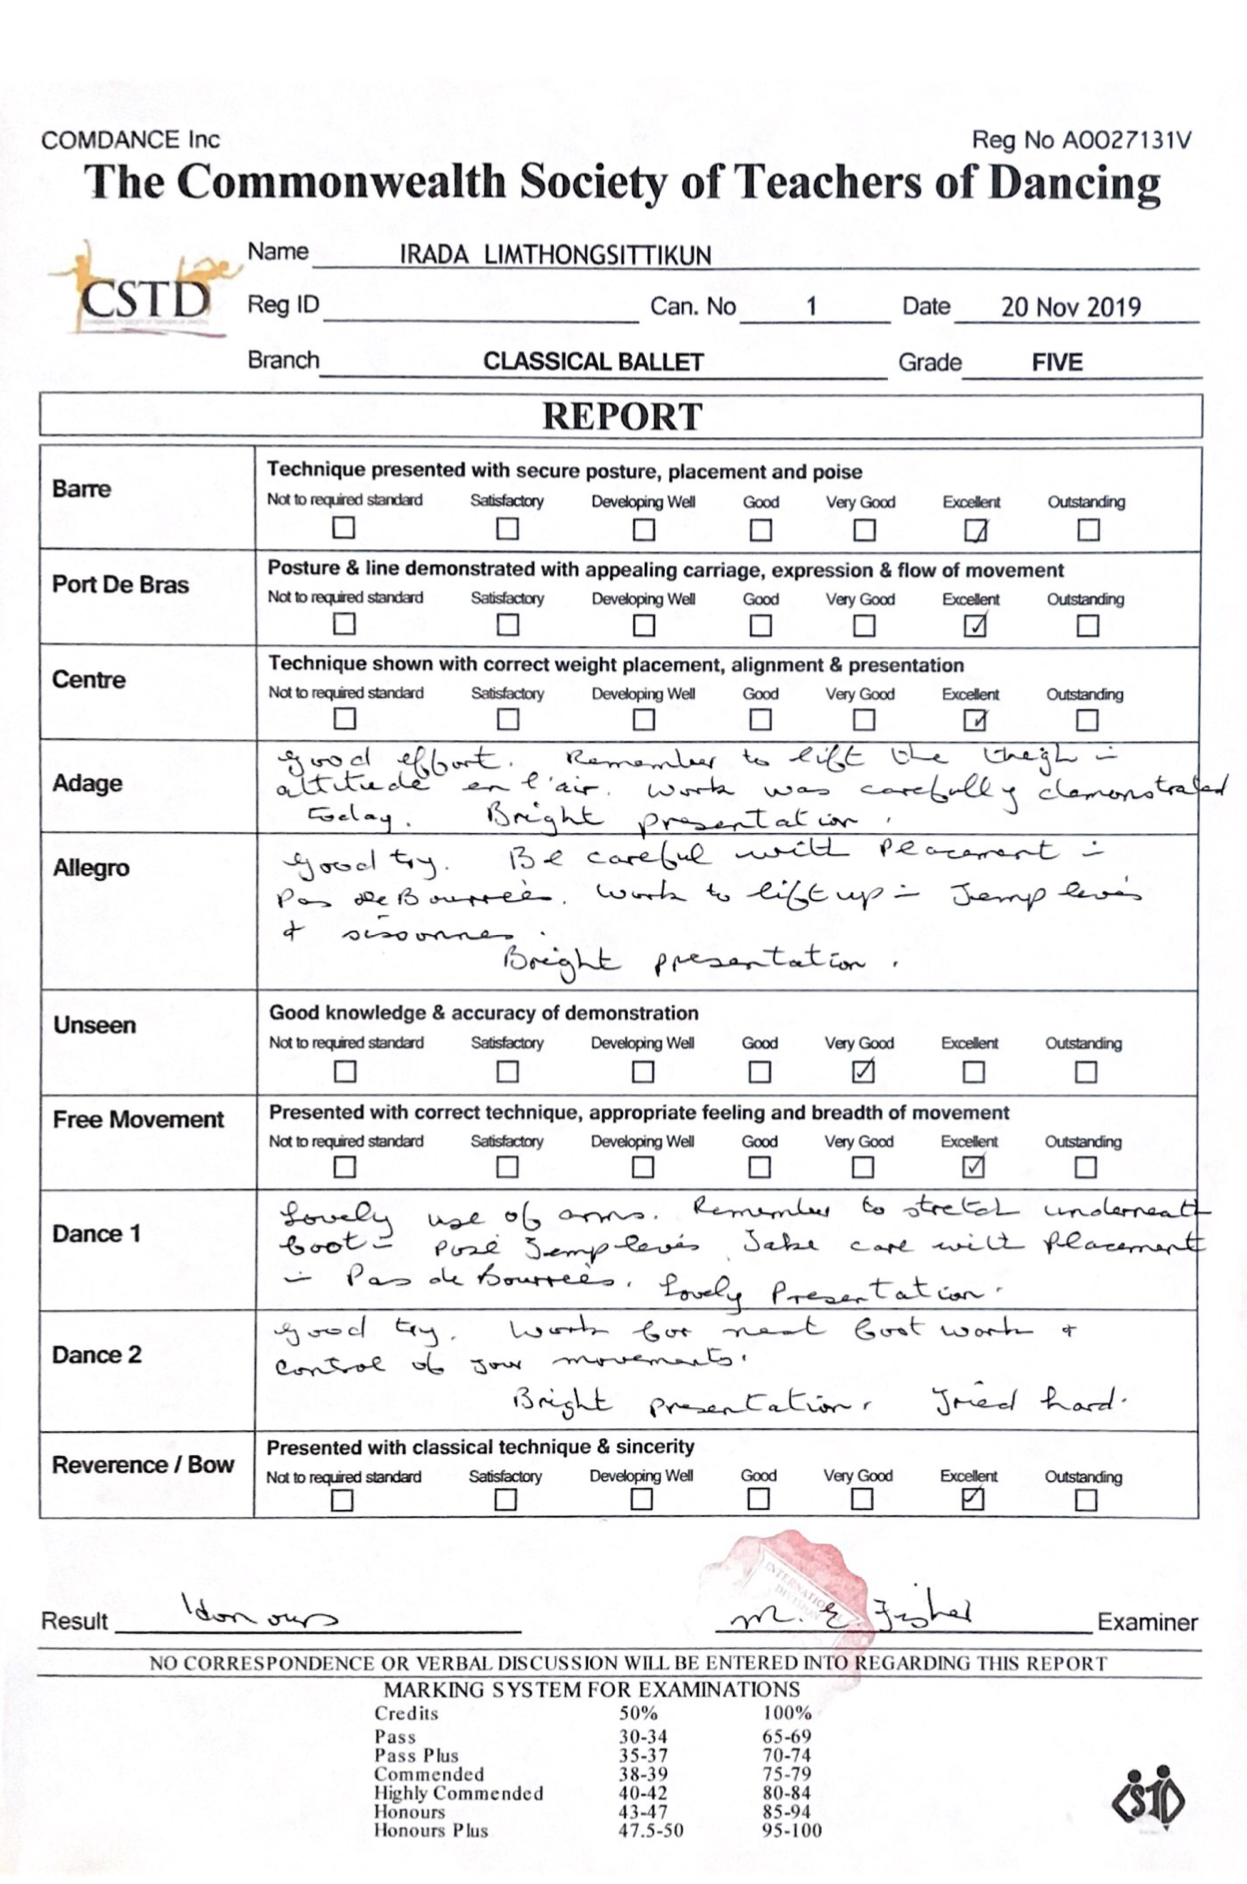 COMDANCE Inc Reg No A0027131V
The Commonwealth Society of Teachers of Dancing
CSTD
Name IRADA LIMTHONGSITTIKUN
Reg ID Can. No 1 Date 20 Nov 2019
Branch CLASSICAL BALLET Grade FIVE
REPORT
Barre
Technique presented with secure posture, placement and poise
Not to required standard Satisfactory Developing Well Good Very Good Excellent Outstanding
Port De Bras
Posture & line demonstrated with appealing carriage, expression & flow of movement
Not to required standard Satisfactory Developing Well Good Very Good Excellent Outstanding
Centre
Technique shown with correct weight placement, alignment & presentation
Not to required standard Satisfactory Developing Well Good Very Good Excellent Outstanding
Adage
Good effort. Remember to lift the thigh in
attitude en l'air. Work was carefully demonstrated
today. Bright presentation.
Allegro
Good try. Be careful with placement in
Pas de Bourrées. Work to lift up in Temp levés
+ sissonnes.
Bright presentation.
Unseen
Good knowledge & accuracy of demonstration
Not to required standard Satisfactory Developing Well Good Very Good Excellent Outstanding
Free Movement
Presented with correct technique, appropriate feeling and breadth of movement
Not to required standard Satisfactory Developing Well Good Very Good Excellent Outstanding
Dance 1
Lovely use of arms. Remember to stretch underneath
foot in posé Temp levés. Take care with placement
in Pas de Bourrées. Lovely Presentation.
Dance 2
Good try. Work for neat foot work +
control of your movements.
Bright presentation. Tried hard.
Reverence / Bow
Presented with classical technique & sincerity
Not to required standard Satisfactory Developing Well Good Very Good Excellent Outstanding
INTERNATIONAL
DIVISION
Result Honours M. E. Fisher Examiner
NO CORRESPONDENCE OR VERBAL DISCUSSION WILL BE ENTERED INTO REGARDING THIS REPORT
MARKING SYSTEM FOR EXAMINATIONS
Credits 50% 100%
Pass 30-34 65-69
Pass Plus 35-37 70-74
Commended 38-39 75-79
Highly Commended 40-42 80-84
Honours 43-47 85-94
Honours Plus 47.5-50 95-100
CSTD